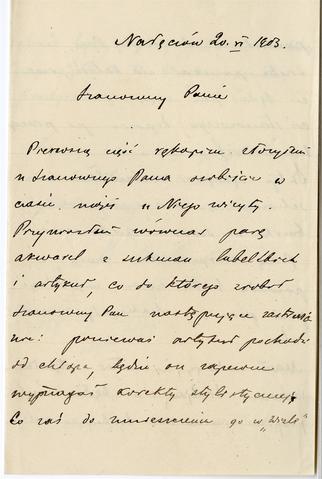 Nałęczów 20. VI 1903.
Szanowny Panie
Pierwszą część rękopisu złożyłem
u Szanownego Pana osobiście w
czasie mojej u Niego wizyty.
Przyniosłem również parę
akwarel z sukman lubelskich
i artykuł, co do którego zrobił
Szanowny Pan następujące zastrzeże
nie: ponieważ artykuł pochodzi
od chłopa, będzie on zapewne
wymagał korekty stylistycznej,
Co zaś do umieszczenia go w „Wiśle”